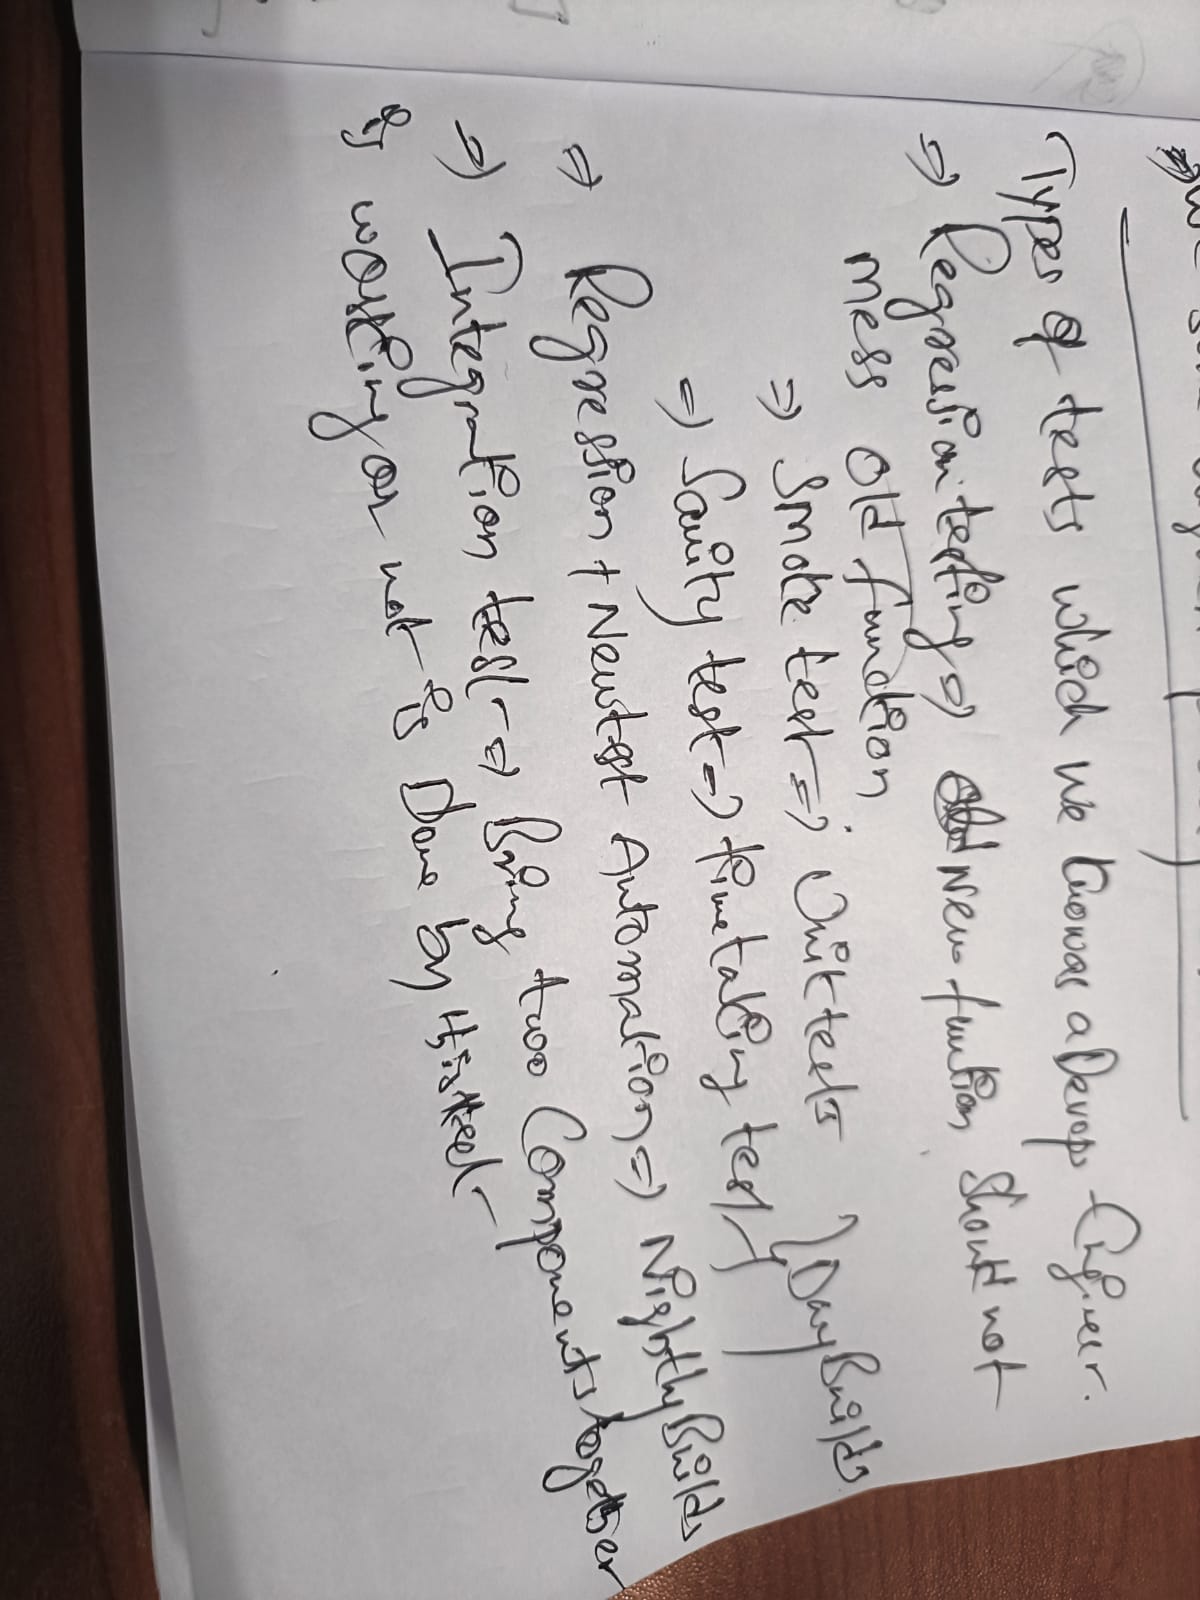 Types of tests which we know as a Devops Engineer.
⇒ Regression testing ⇒ New function should not
mess old function
⇒ Smoke test ⇒ Unit tests } Day Builds
⇒ Sanity test ⇒ time taking test }
⇒ Regression + New test Automation ⇒ Nightly Builds
⇒ Integration test ⇒ Bring two Components together
is working or not is Done by this test